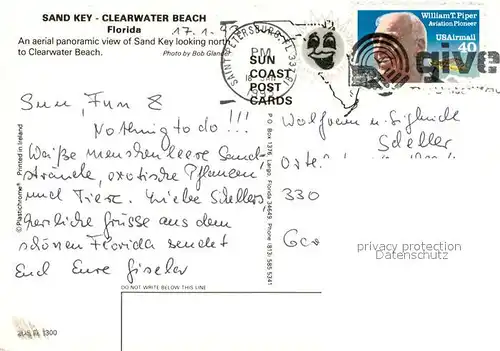 SAND KEY - CLEARWATER BEACH
Florida 17.1.9
An aerial panoramic view of Sand Key looking nort
to Clearwater Beach. Photo by Bob Glan
SAINT PETERSBURG, FL 337
PM
18 JAN
199
William T. Piper
Aviation Pioneer
USAirmail
40
give
SUN
COAST
POST
CARDS
P.O. Box 1376, Largo, Florida 34649, Phone (813) 585
©Plastichrome® Printed in Ireland
Sun, Fun &
Nothing to do!!!
Weiße menschenleere Sand-
strände, exotische Pflanzen
und Tiere. Liebe Schellers,
herzliche Grüsse aus dem
schönen Florida sendet
Euch Eure Giseler
Wolfram u. Sieglinde
Scheller
Oste
330
privacy protection
DO NOT WRITE BELOW THIS LINE
1300